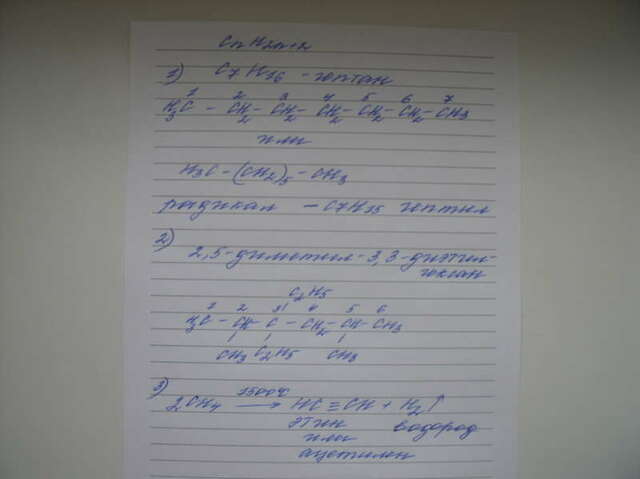 CnH2n+2
1) C7H16 - гептан
1 2 3 4 5 6 7
H3C - CH2 - CH2 - CH2 - CH2 - CH2 - CH3
или
H3C - (CH2)5 - CH3
радикал - C7H15 гептил
2)
2,5-диметил-3,3-диэтил-
гексан
C2H5
1 2 3 4 5 6
H3C - CH - C - CH2 - CH - CH3
CH3 C2H5 CH3
3) 1500°C
2CH4 → HC ≡ CH + H2↑
этин водород
или
ацетилен